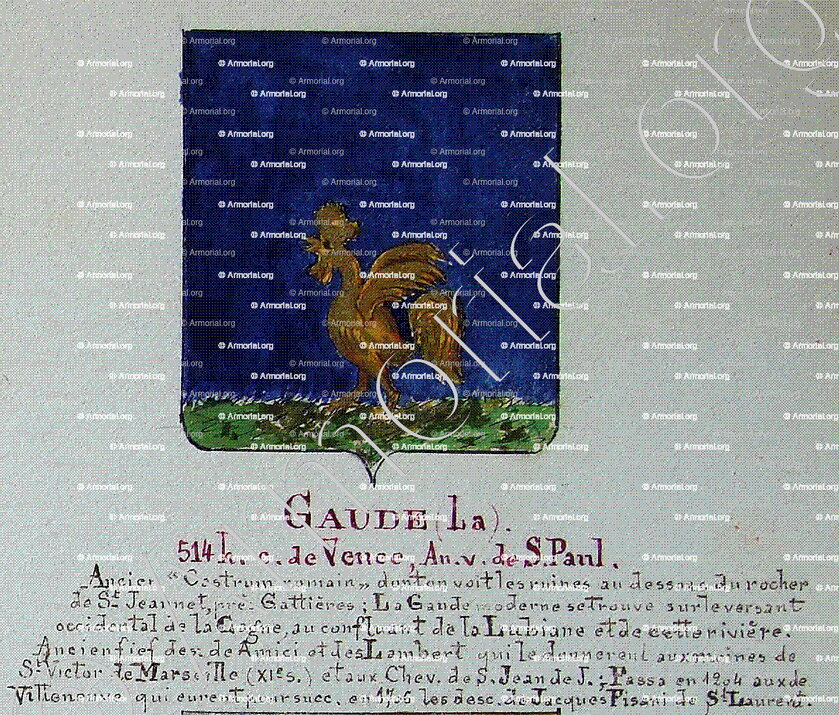 GAUDE (La).
514 h. c. de Vence, An. v. de S. Paul.
Ancien "Castrum romain" dont on voit les ruines au dessus du rocher
de St Jeannet, près Gattières ; La Gaude moderne se trouve sur le versant
occidental de la Cagne, au confluant de la Lubiane et de cette rivière.
Ancien fief des de Amici et des Lambert qui le donnerent aux moines de
St Victor de Marseille (XIes.) et aux Chev. de S. Jean de J. ; Passa en 1204 aux de
Villeneuve qui eurent pour succ. en les desc. de Jacques Pisani de St Laurent.
© Armorial.org
Armorial.org